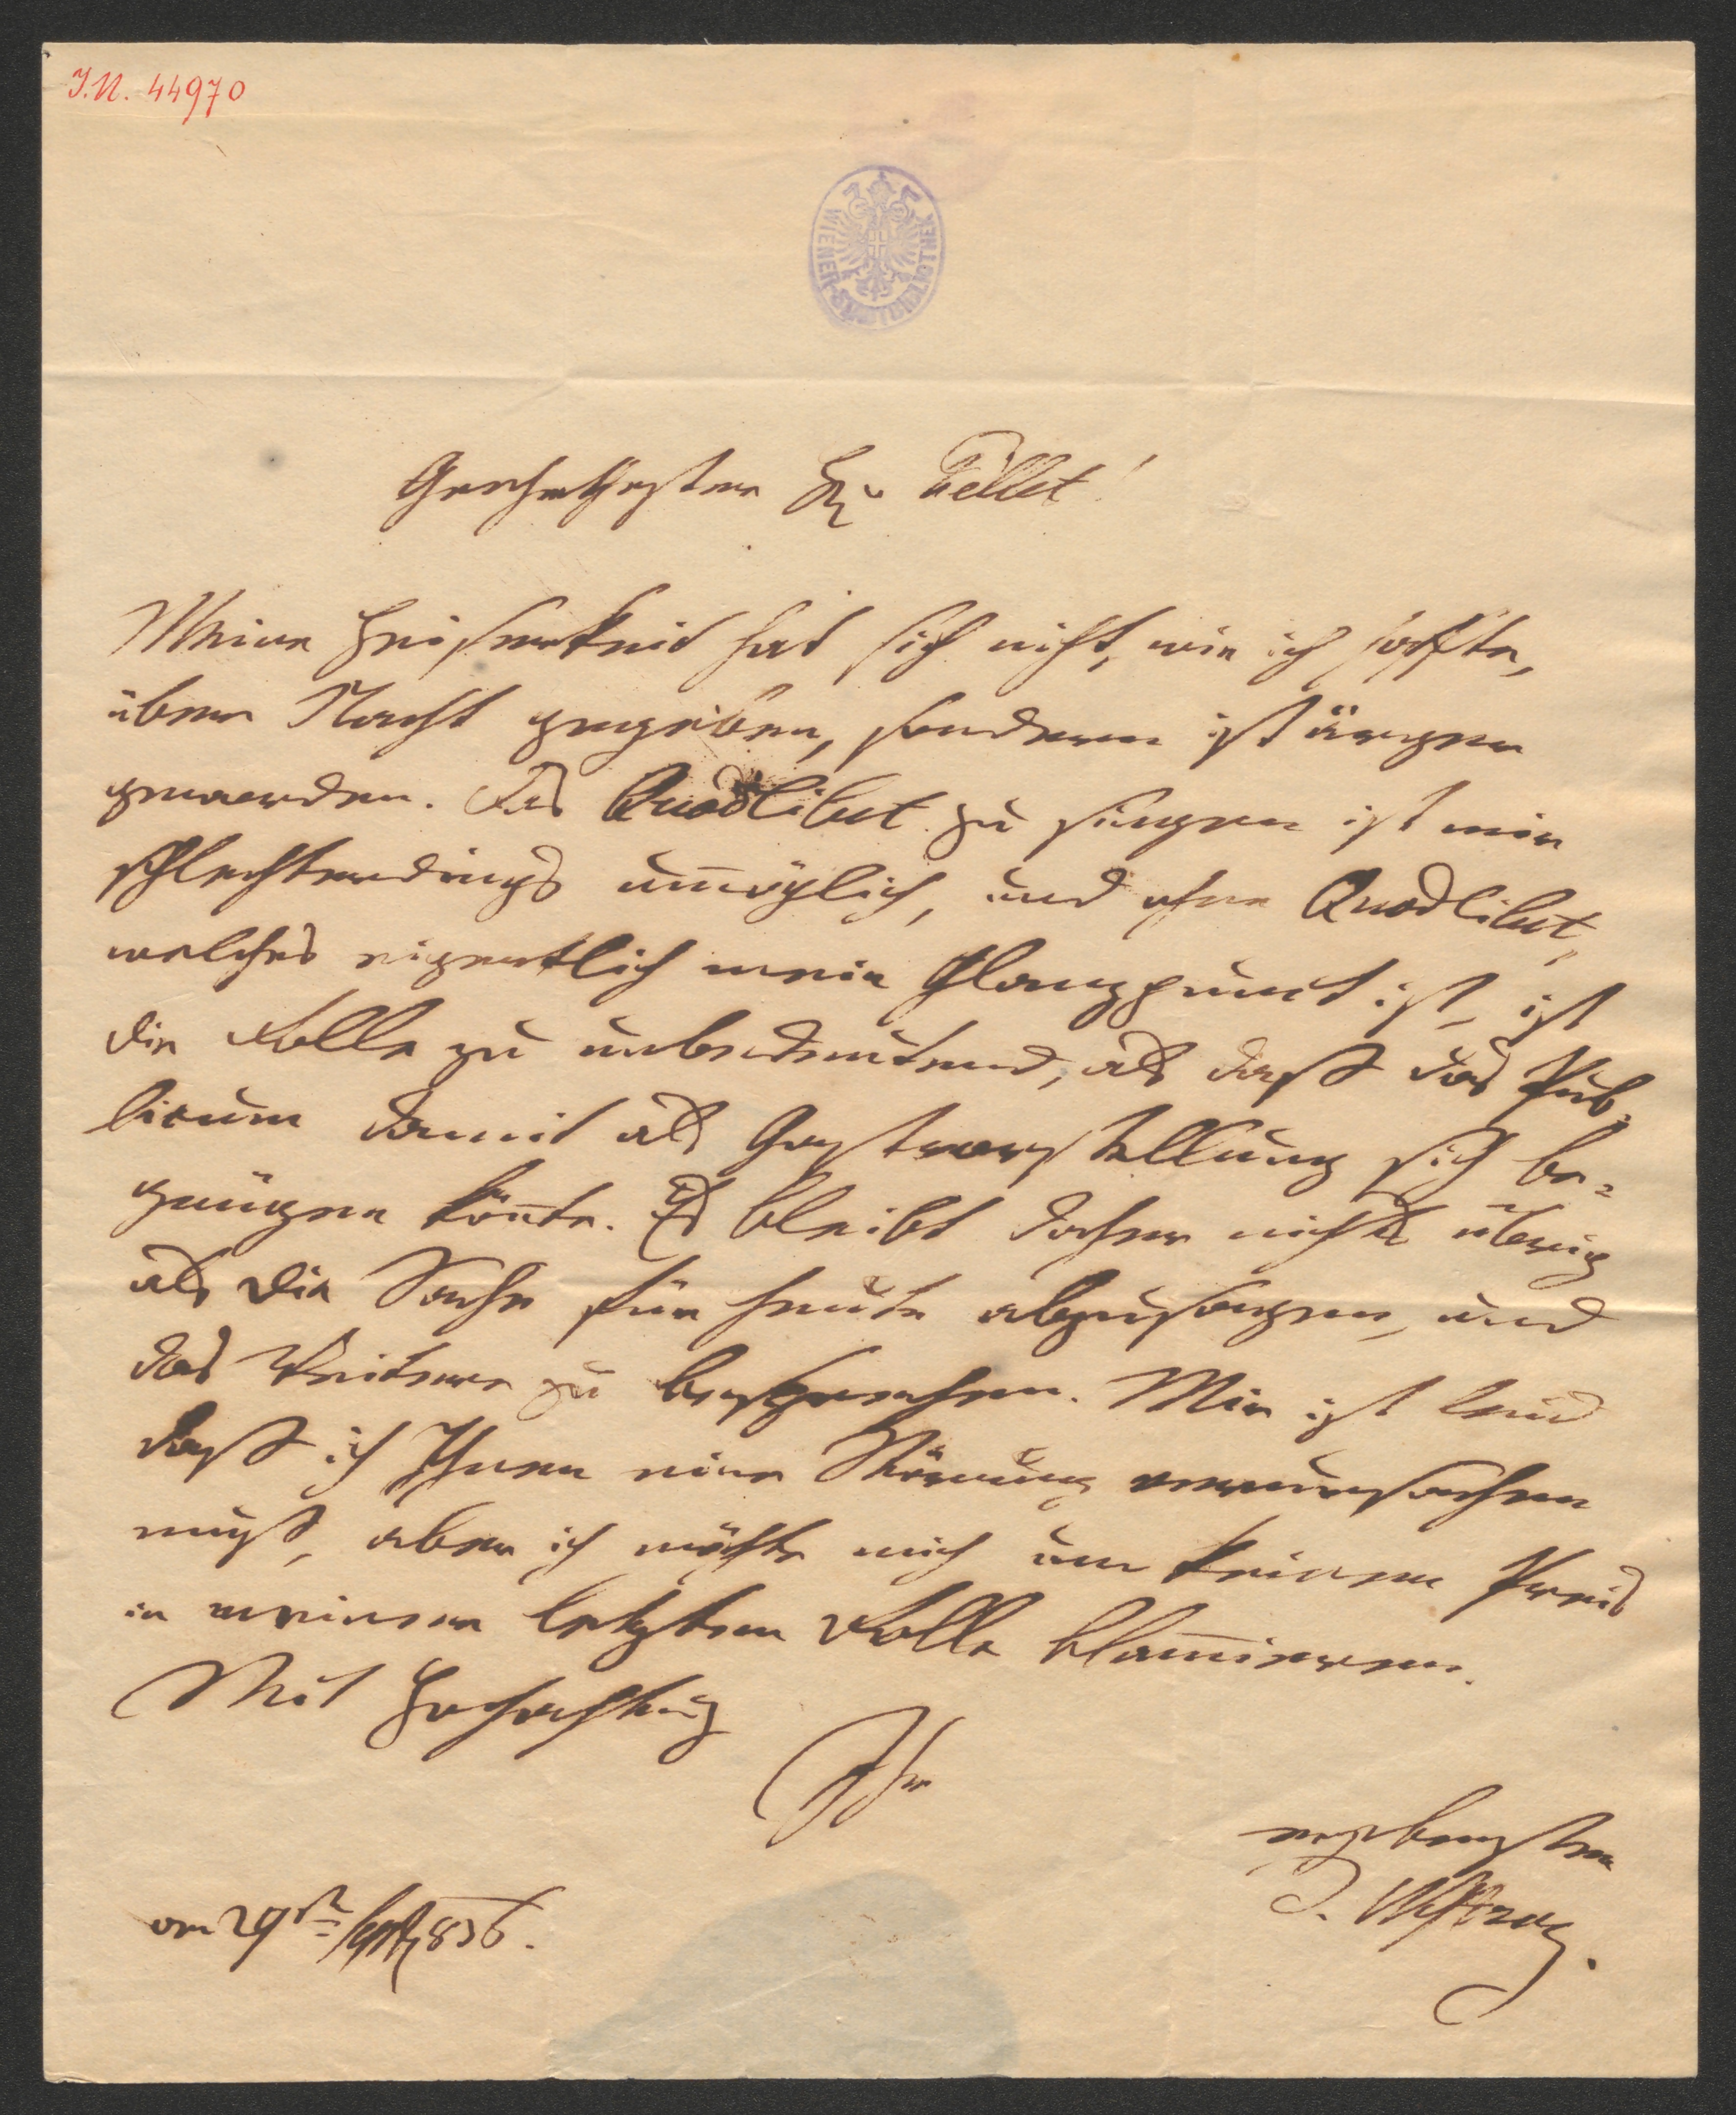 I.N. 44970
WIENER STADTBIBLIOTHEK
Geschätztester H: Töllet!
Meine Heiserkeit hat sich nicht, wie ich hoffte,
über Nacht gegeben, sondern ist ärger
geworden. Das Quodlibet zu singen ist mir
schlechterdings unmöglich, und ohne Quodlibet,
welches eigentlich mein Glanzpunct ist, ist
die Rolle zu unbedeutend, als daß das Pub-
licum damit als Gastvorstellung sich be-
gnügen kön̄te. Es bleibt daher nichts übrig
als die Sache für heute abzusagen, und
das Weitere zu besprechen. Mir ist leid
daß ich Ihnen eine Störung verursachen
muß, aber ich möchte mich um keinen Preis
in meiner letzten Rolle blam̄ieren.
Mit Hochachtung
Ihr
ergebenster
J. Nestroy.
am 29t Sept 836.